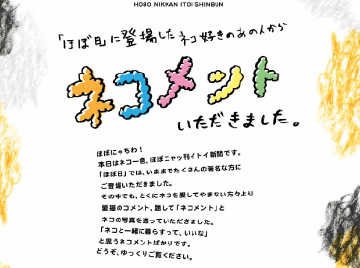 HOBO NIKKAN ITOI SHINBUN
「ほぼ日」に登場したネコ好きのあの人から
ネコメント
いただきました。
ほぼにゃちわ！
本日はネコ一色、ほぼニャッ刊イトイ新聞です。
「ほぼ日」では、いままでたくさんの著名な方に
ご登場いただきました。
その中でも、とくにネコを愛してやまない方々より
愛猫のコメント、題して「ネコメント」と
ネコの写真を送っていただきました。
「ネコと一緒に暮らすって、いいな」
と思うネコメントばかりです。
どうぞ、ゆっくりご覧ください。